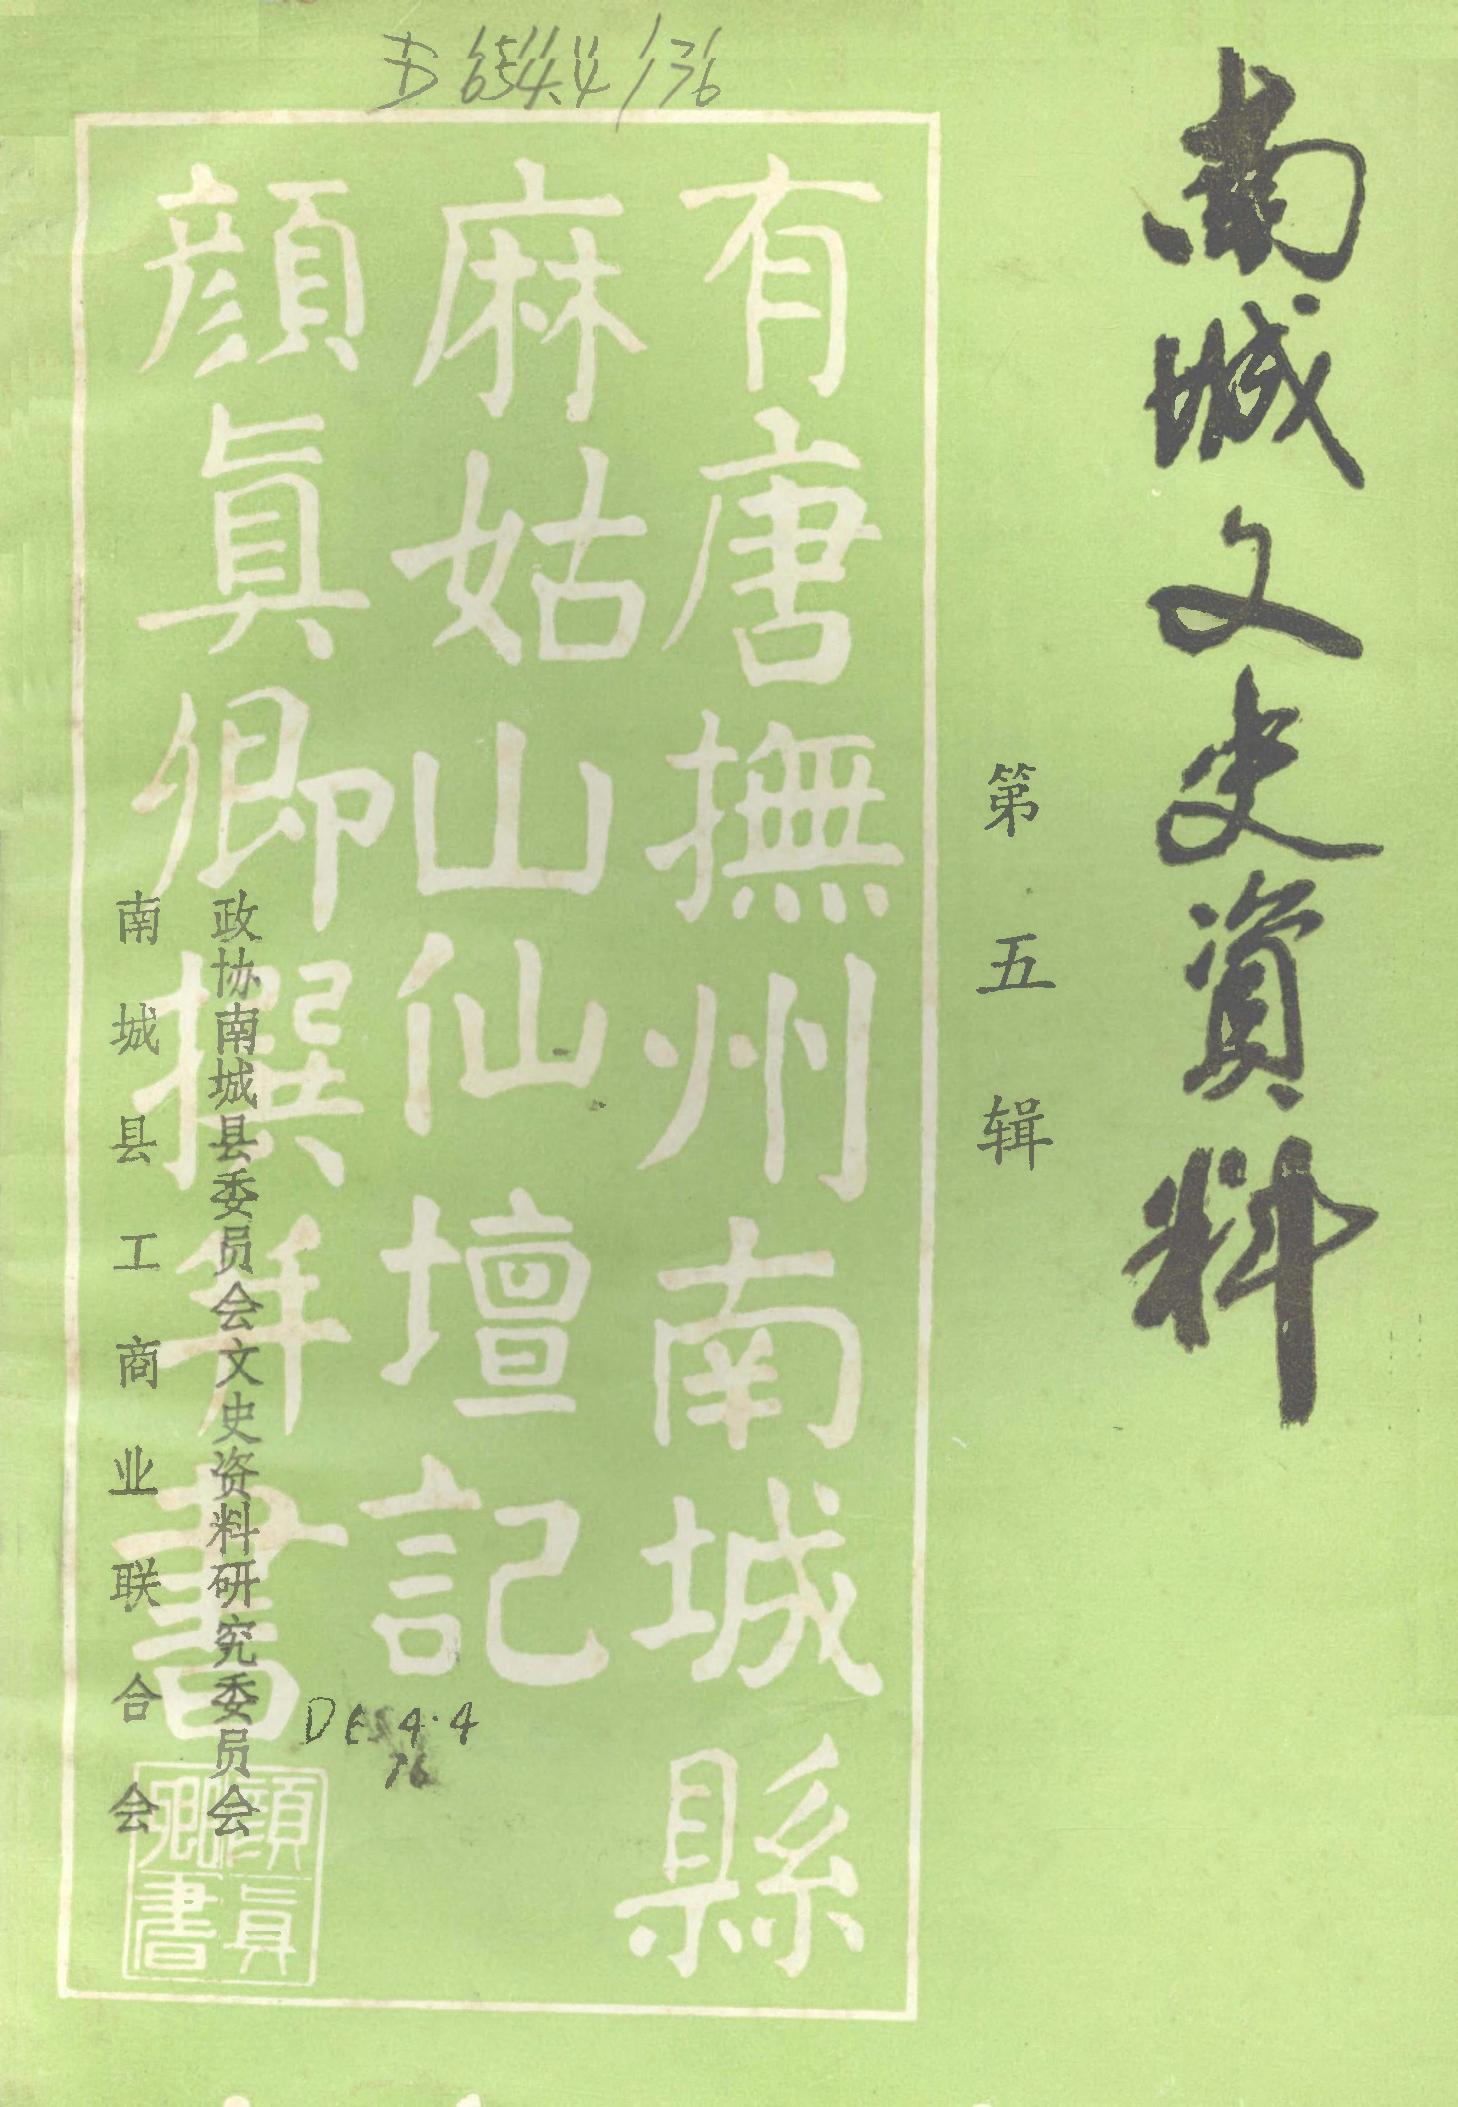 南城文史資料
第五辑
有唐撫州南城縣
麻姑山仙壇記
顔真卿撰并書
政协南城县委员会文史资料研究委员会
南城县工商业联合会
顔真卿書